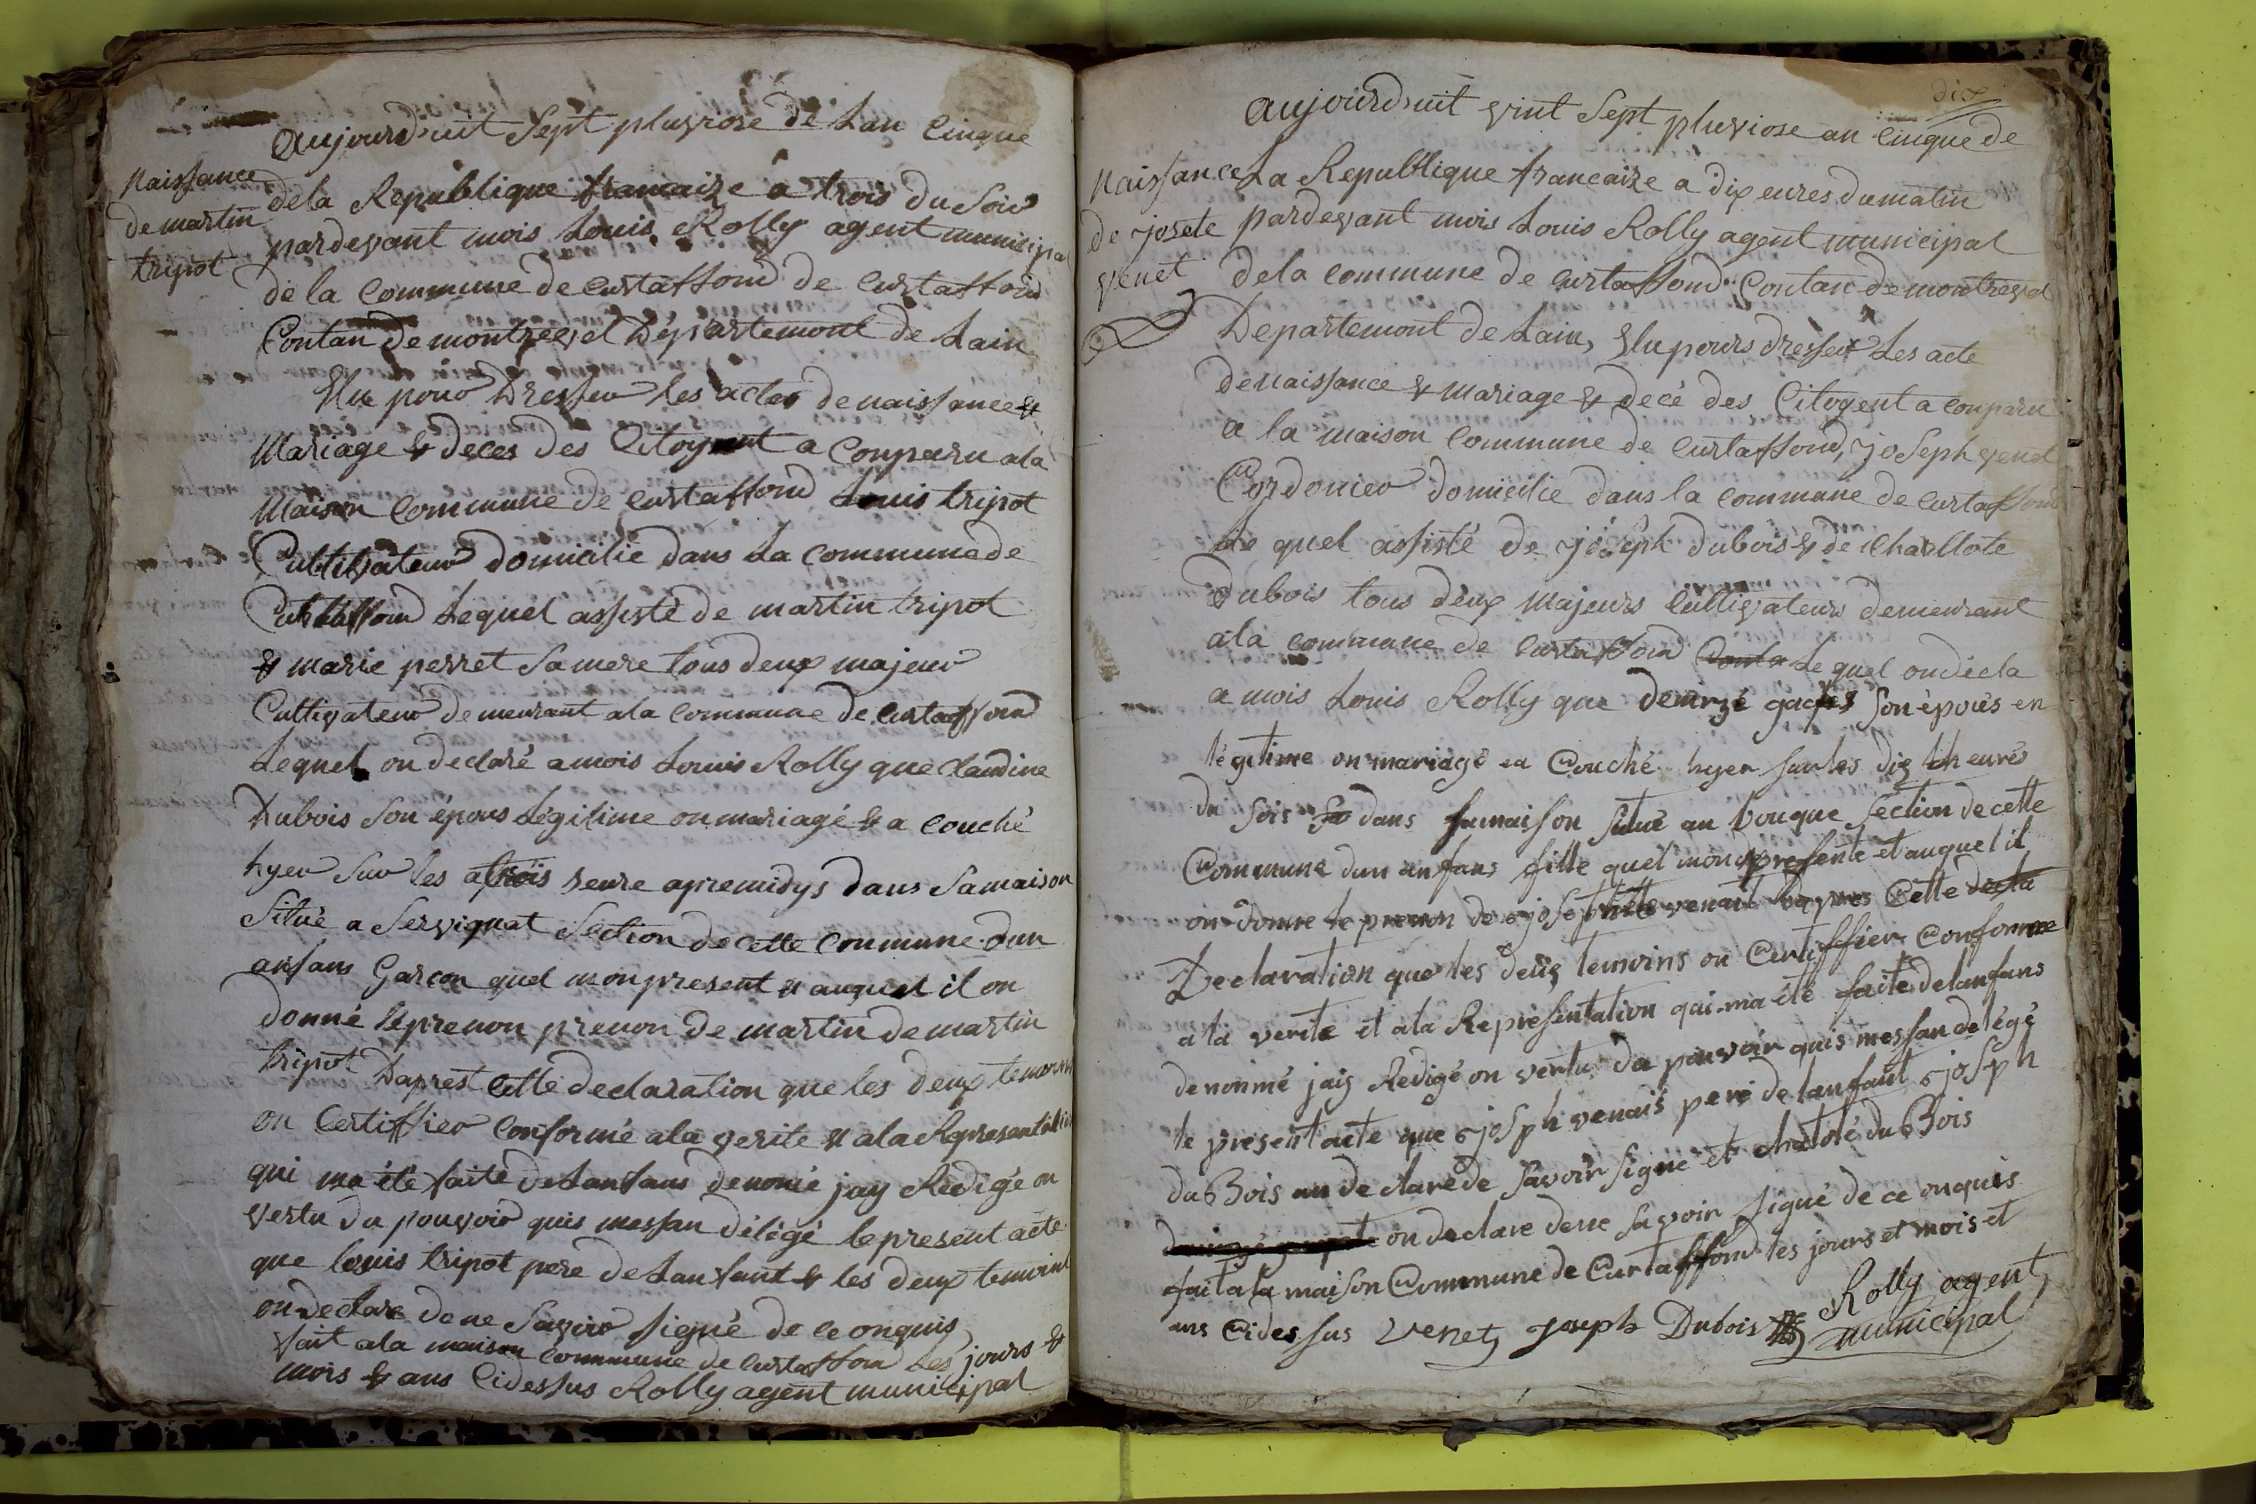 Naissance
de martin
tripot
aujourdhuit Sept pluviose de Lan Cinque
dela Republique francaize a trois du Soir
pardevant mois Louis Rolly agent municipal
de la Commune de Curtaffond de Curtaffond
Contan de montrevel Département de Lain
Elu pour Dresser les actes de naissance &
Mariage & deces des Citoyent a Conparu a la
Maison Commune de Curtaffond Louis tripot
Cultivateur domicilie dans La Commune de
Curtaffond Lequel assisté de martin tripot
& marie perret Sa mere tous deux majeur
Cultivateur demeurant a la Commune de Curtaffond
Lequel on declaré a mois Louis Rolly que Claudine
Dubois Son épous Légitime on mariagé & a couché
hyer Sur les a trois heure apremidys dans Sa maison
Situé a Servignat Section de cette Commune dun
anfans Garcon quel mon present & auquel il on
donné le prenon prenon De martin de martin
tripot Daprest Cette declaration que les deux temoins
on Certiffier Conformé a la verite & a la Representation
qui ma été faite de Lanfans denomé jay Redigé on
vertu du pouvoir quis messan délégé le present acte
que louis tripot pere de Lanfant & les deux temoint
on declare de ne Savoir Signé de ce onquis
fait a la maison Commune de Curtaffon Les jours &
mois & ans Cidessus Rolly agent municipal
dix
Naissance
de josete
venet
aujourdhuit vint Sept pluviose an Cinque de
La Republique francaize a dix eures du matin
pardevant mois Louis Rolly agent municipal
de la commune de Curtaffond Contan de montrevel
Departemont de Lain, Elu pours dresser Les acte
de naissance & mariage & decé des Citoyent a conparu
a la maison Commune de Curtaffond, joSeph venet
Cordonier domicilie dans la commune de Curtaffond
Le quel assisté de joseph dubois & de Charllote
Dubois tous deux Majeurs Cultivateurs demeurant
a la commune de Curtaffond Le quel on decla
a mois Louis Rolly que denizé Son épous en
légitime on mariagé ea Couché hyer sur les dix heures
du Soir dans sa maison Situé au bouque Section de cette
Commune dun anfans fille quel mon presente et auquel il
on donne le prenon de josephte venait dapres Cette decla
Declaration que les deux temoins on Certiffier Conforme
a la verite et a la Representation qui ma été faite de lanfans
denonmé jais Redigé on vertu du pouvoir quis messan delégé
le present acte que joseph venais pere de lanfant joseph
du Bois an declare de Savoir Signe et charlote du Bois
on declare de ne Savoir Signé de ce onquis
fait a la maison Commune de Curtaffond les jours et mois et
ans Cidessus Venet joseph Dubois Rolly agent
municipal